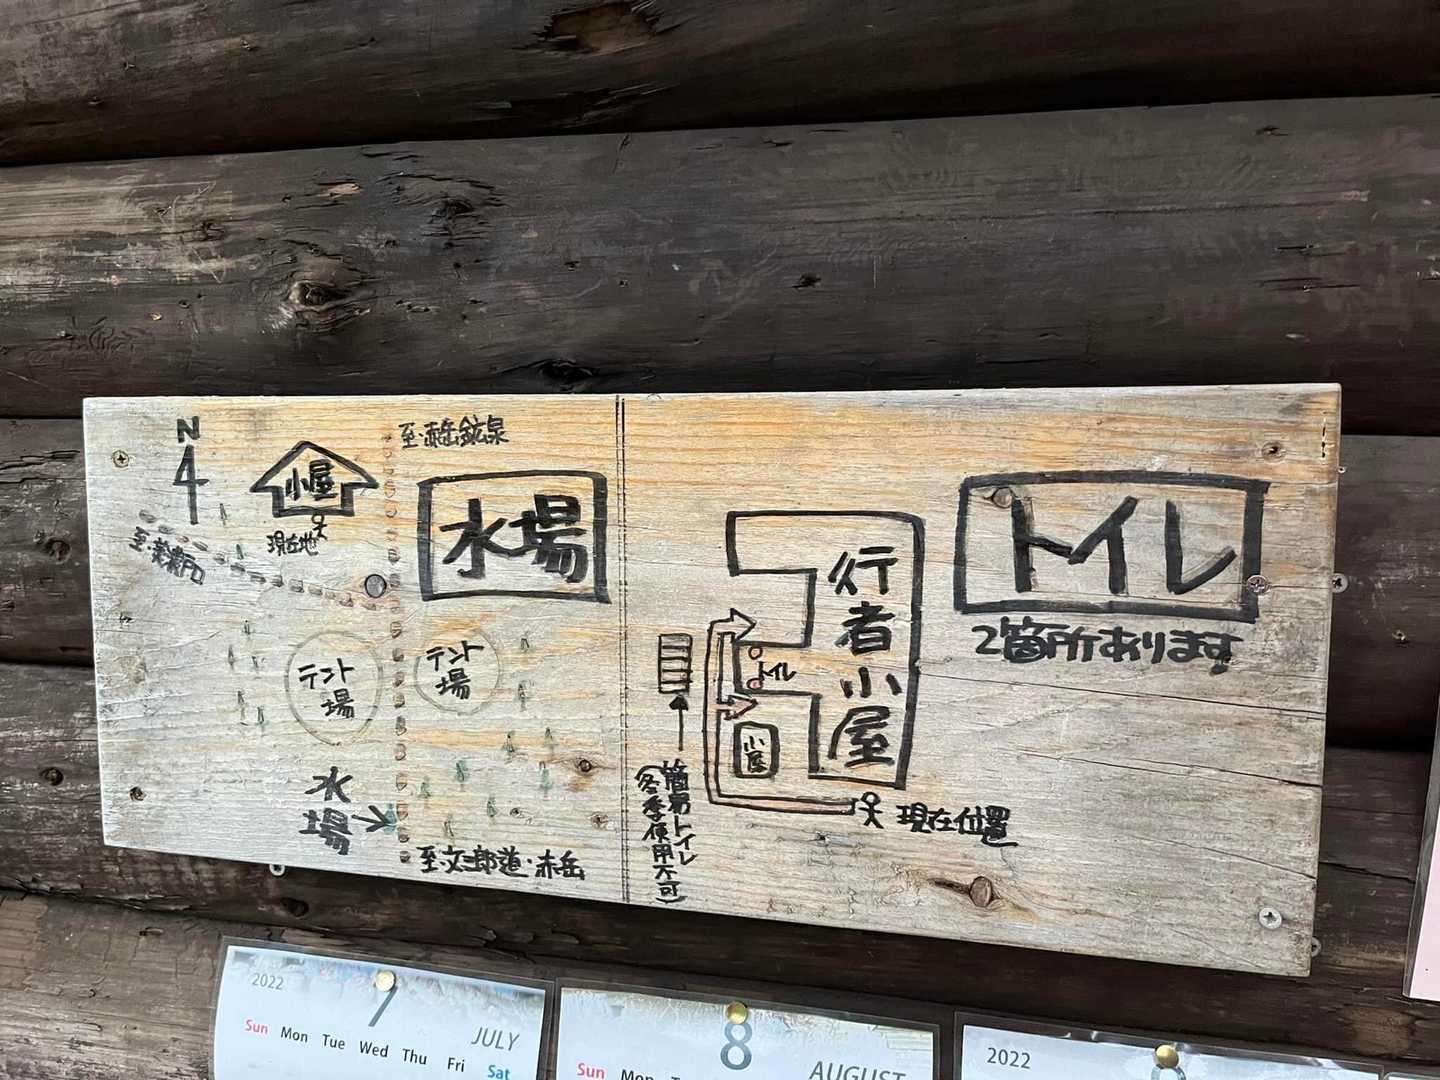 N
小屋
現在地
至・赤岳鉱泉
水場
至・美濃戸口
テント
場
テント
場
水
場
至・文三郎道・赤岳
トイレ
2箇所あります
行者小屋
トイレ
小屋
簡易トイレ
(冬季使用不可)
現在位置
2022
7
JULY
Sun Mon Tue Wed Thu Fri Sat
8
AUGUST
Sun Mon
2022